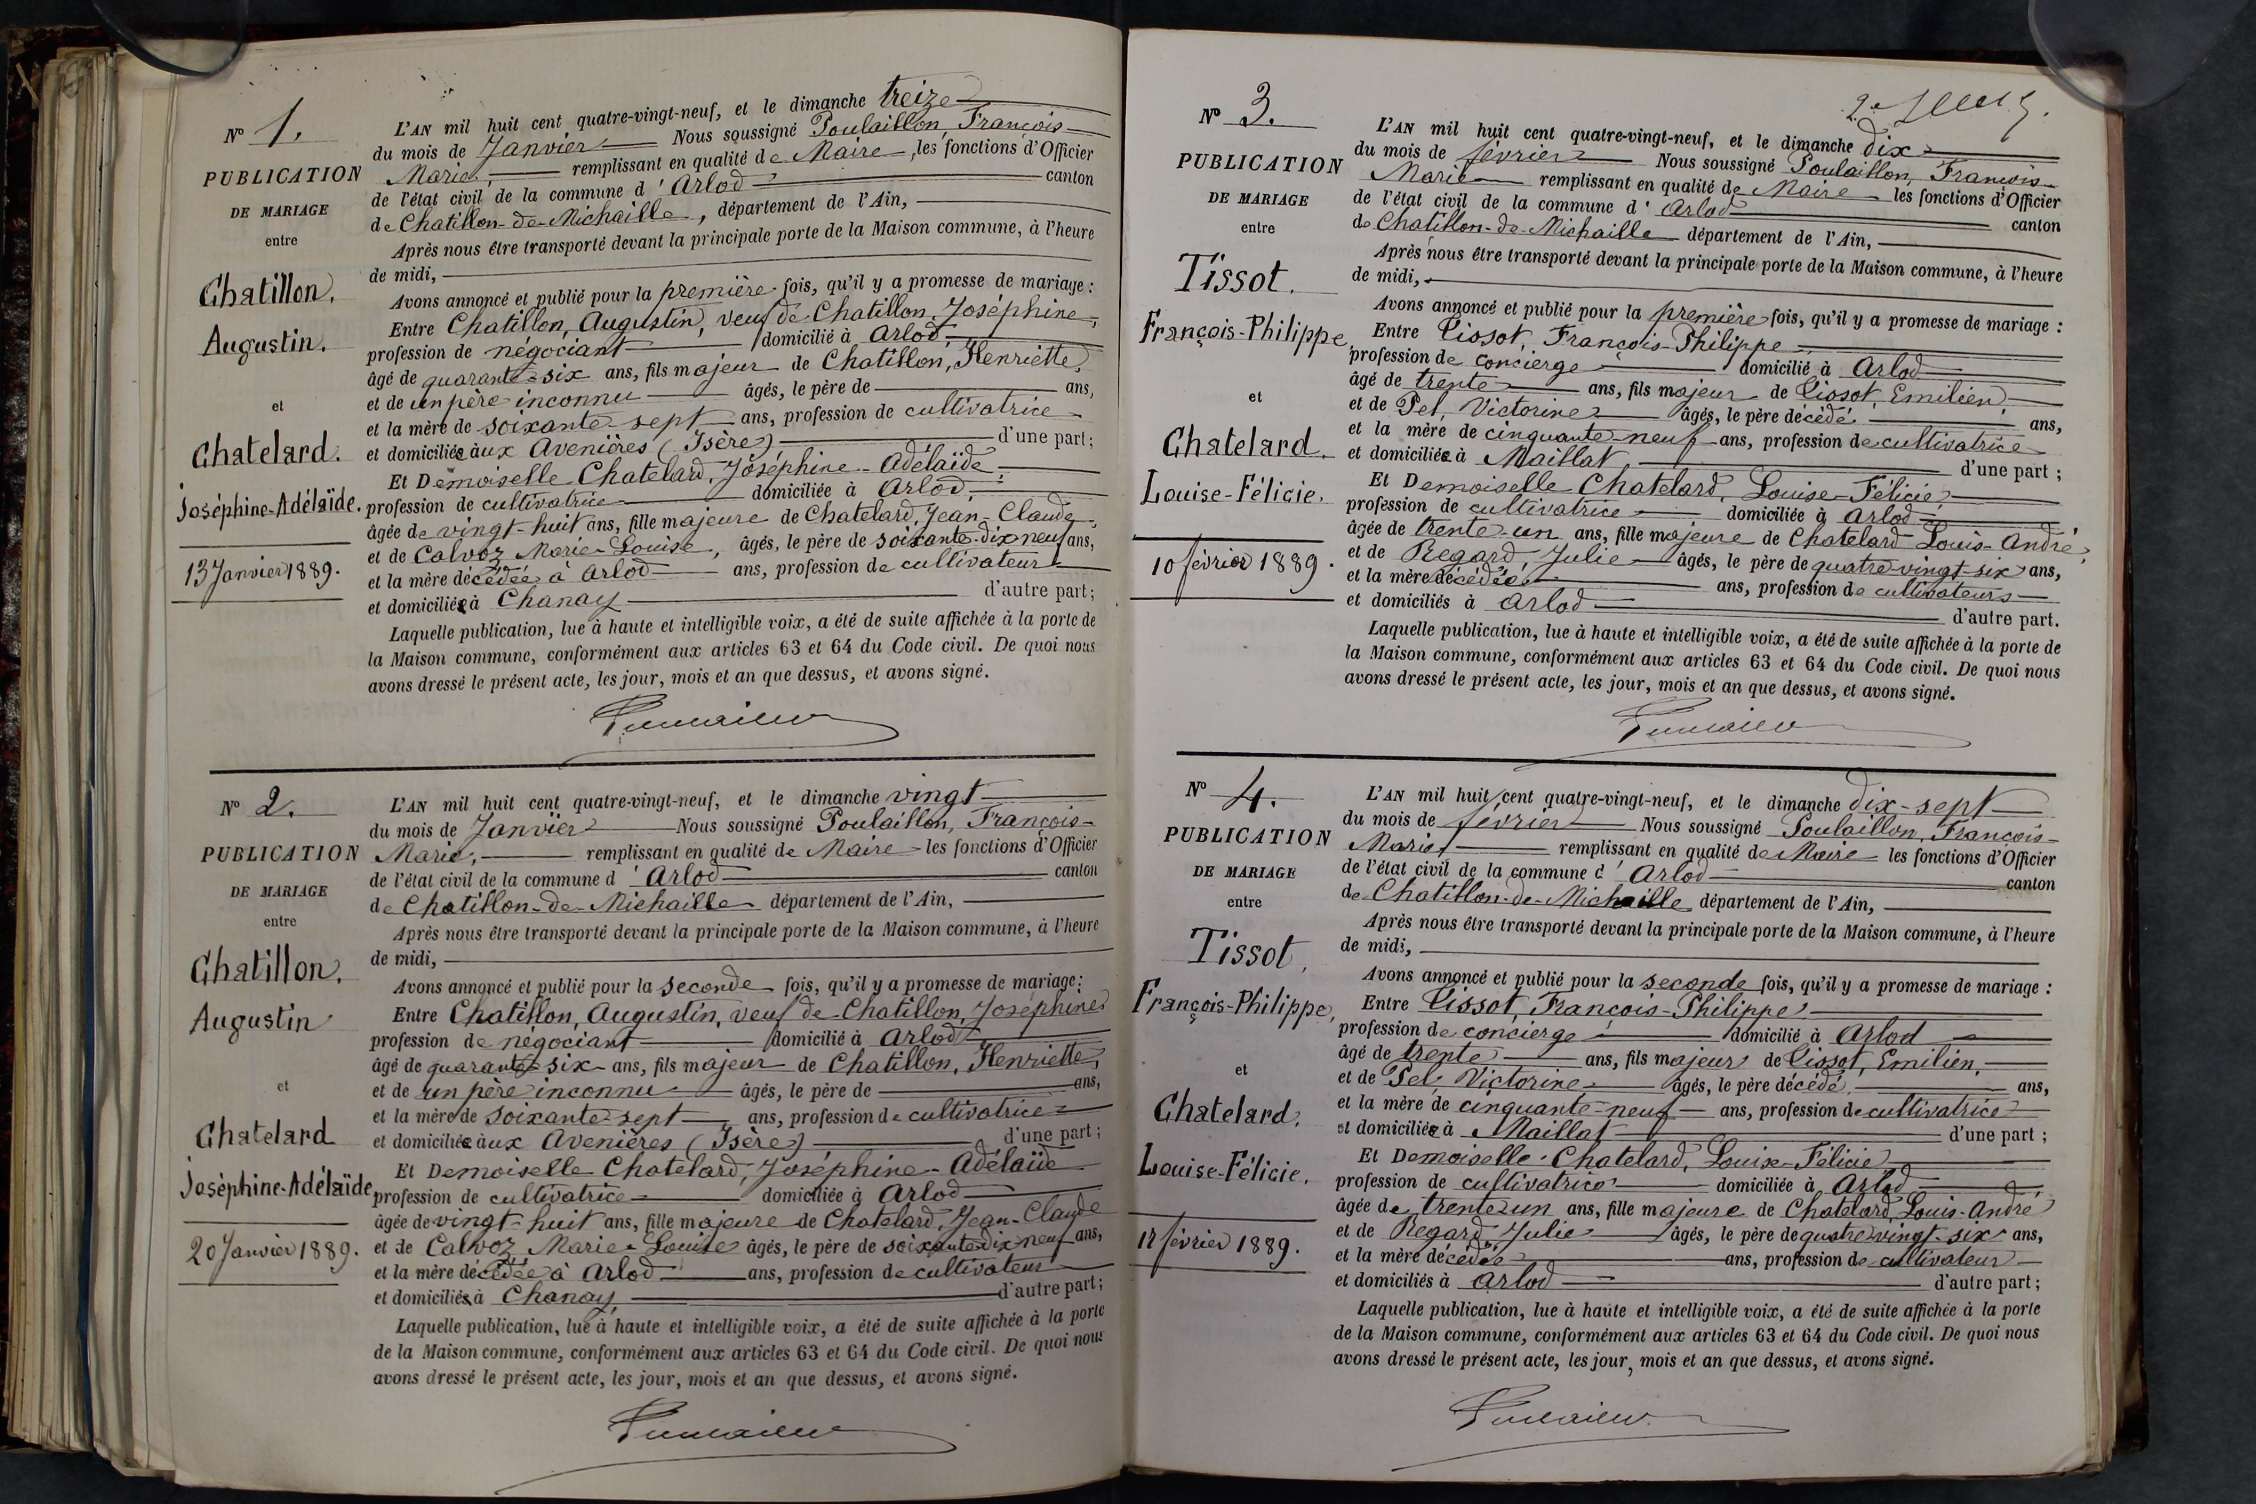 Nº 1.
PUBLICATION
DE MARIAGE
entre
Chatillon,
Augustin.
et
Chatelard.
Joséphine-Adélaïde.
13 Janvier 1889.
L'AN mil huit cent quatre-vingt-neuf, et le dimanche treize
du mois de Janvier Nous soussigné Poulaillon, François-
Marie, remplissant en qualité de Maire, les fonctions d'Officier
de l'état civil de la commune d'Arlod canton
de Chatillon-de-Michaille, département de l'Ain,
Après nous être transporté devant la principale porte de la Maison commune, à l'heure
de midi,
Avons annoncé et publié pour la première fois, qu'il y a promesse de mariage :
Entre Chatillon, Augustin, veuf de Chatillon, Joséphine,
profession de négociant domicilié à Arlod,
âgé de quarante-six ans, fils majeur de Chatillon, Henriette,
et de un père inconnu âgés, le père de ans,
et la mère de soixante-sept ans, profession de cultivatrice
et domiciliée aux Avenières (Isère) d'une part;
Et Demoiselle Chatelard, Joséphine-Adélaïde
profession de cultivatrice domiciliée à Arlod,
âgée de vingt-huit ans, fille majeure de Chatelard, Jean-Claude,
et de Calvoz Marie-Louise, âgés, le père de soixante-dix neuf ans,
et la mère décédée à Arlod ans, profession de cultivateur
et domiciliés à Chanay d'autre part;
Laquelle publication, lue à haute et intelligible voix, a été de suite affichée à la porte de
la Maison commune, conformément aux articles 63 et 64 du Code civil. De quoi nous
avons dressé le présent acte, les jour, mois et an que dessus, et avons signé.
Nº 2.
PUBLICATION
DE MARIAGE
entre
Chatillon,
Augustin
et
Chatelard
Joséphine-Adélaïde
20 Janvier 1889.
L'AN mil huit cent quatre-vingt-neuf, et le dimanche vingt
du mois de Janvier Nous soussigné Poulaillon, François-
Marie, remplissant en qualité de Maire les fonctions d'Officier
de l'état civil de la commune d'Arlod canton
de Chatillon-de-Michaille département de l'Ain,
Après nous être transporté devant la principale porte de la Maison commune, à l'heure
de midi,
Avons annoncé et publié pour la seconde fois, qu'il y a promesse de mariage:
Entre Chatillon, Augustin, veuf de Chatillon, Joséphine
profession de négociant domicilié à Arlod
âgé de quarante-six ans, fils majeur de Chatillon, Henriette,
et de un père inconnu âgés, le père de ans,
et la mère de soixante-sept ans, profession de cultivatrice
et domiciliée aux Avenières (Isère) d'une part;
Et Demoiselle Chatelard, Joséphine-Adélaïde
profession de cultivatrice domiciliée à Arlod
âgée de vingt-huit ans, fille majeure de Chatelard, Jean-Claude
et de Calvoz Marie-Louise âgés, le père de soixante-dix neuf ans,
et la mère décédée à Arlod ans, profession de cultivateur
et domiciliés à Chanay, d'autre part;
Laquelle publication, lue à haute et intelligible voix, a été de suite affichée à la porte
de la Maison commune, conformément aux articles 63 et 64 du Code civil. De quoi nous
avons dressé le présent acte, les jour, mois et an que dessus, et avons signé.
Nº 3.
PUBLICATION
DE MARIAGE
entre
Tissot.
François-Philippe
et
Chatelard.
Louise-Félicie.
10 février 1889.
L'AN mil huit cent quatre-vingt-neuf, et le dimanche dix
du mois de février Nous soussigné Poulaillon, François-
Marie remplissant en qualité de Maire les fonctions d'Officier
de l'état civil de la commune d'Arlod canton
de Chatillon-de-Michaille département de l'Ain,
Après nous être transporté devant la principale porte de la Maison commune, à l'heure
de midi,
Avons annoncé et publié pour la première fois, qu'il y a promesse de mariage :
Entre Tissot, François-Philippe
profession de concierge domicilié à Arlod
âgé de trente ans, fils majeur de Tissot, Emilien,
et de Pel, Victorine âgés, le père décédé ans,
et la mère de cinquante-neuf ans, profession de cultivatrice
et domiciliée à Maillat, d'une part ;
Et Demoiselle Chatelard, Louise-Félicie
profession de cultivatrice domiciliée à Arlod
âgée de trente-un ans, fille majeure de Chatelard Louis-André,
et de Regard, Julie âgés, le père de quatre-vingt-six ans,
et la mère décédée ans, profession de cultivateurs
et domiciliés à Arlod d'autre part.
Laquelle publication, lue à haute et intelligible voix, a été de suite affichée à la porte de
la Maison commune, conformément aux articles 63 et 64 du Code civil. De quoi nous
avons dressé le présent acte, les jour, mois et an que dessus, et avons signé.
Nº 4.
PUBLICATION
DE MARIAGE
entre
Tissot,
François-Philippe,
et
Chatelard,
Louise-Félicie.
17 février 1889.
L'AN mil huit cent quatre-vingt-neuf, et le dimanche dix-sept
du mois de février Nous soussigné Poulaillon, François-
Marie, remplissant en qualité de Maire les fonctions d'Officier
de l'état civil de la commune d'Arlod canton
de Chatillon-de-Michaille département de l'Ain,
Après nous être transporté devant la principale porte de la Maison commune, à l'heure
de midi,
Avons annoncé et publié pour la seconde fois, qu'il y a promesse de mariage :
Entre Tissot, François-Philippe
profession de concierge domicilié à Arlod
âgé de trente ans, fils majeur de Tissot, Emilien,
et de Pel, Victorine âgés, le père décédé, ans,
et la mère de cinquante-neuf ans, profession de cultivatrice
et domiciliée à Maillat d'une part ;
Et Demoiselle Chatelard, Louise-Félicie
profession de cultivatrice domiciliée à Arlod
âgée de trente-un ans, fille majeure de Chatelard, Louis-André
et de Regard, Julie âgés, le père de quatre-vingt-six ans,
et la mère décédée ans, profession de cultivateur
et domiciliés à Arlod d'autre part;
Laquelle publication, lue à haute et intelligible voix, a été de suite affichée à la porte
de la Maison commune, conformément aux articles 63 et 64 du Code civil. De quoi nous
avons dressé le présent acte, les jour, mois et an que dessus, et avons signé.